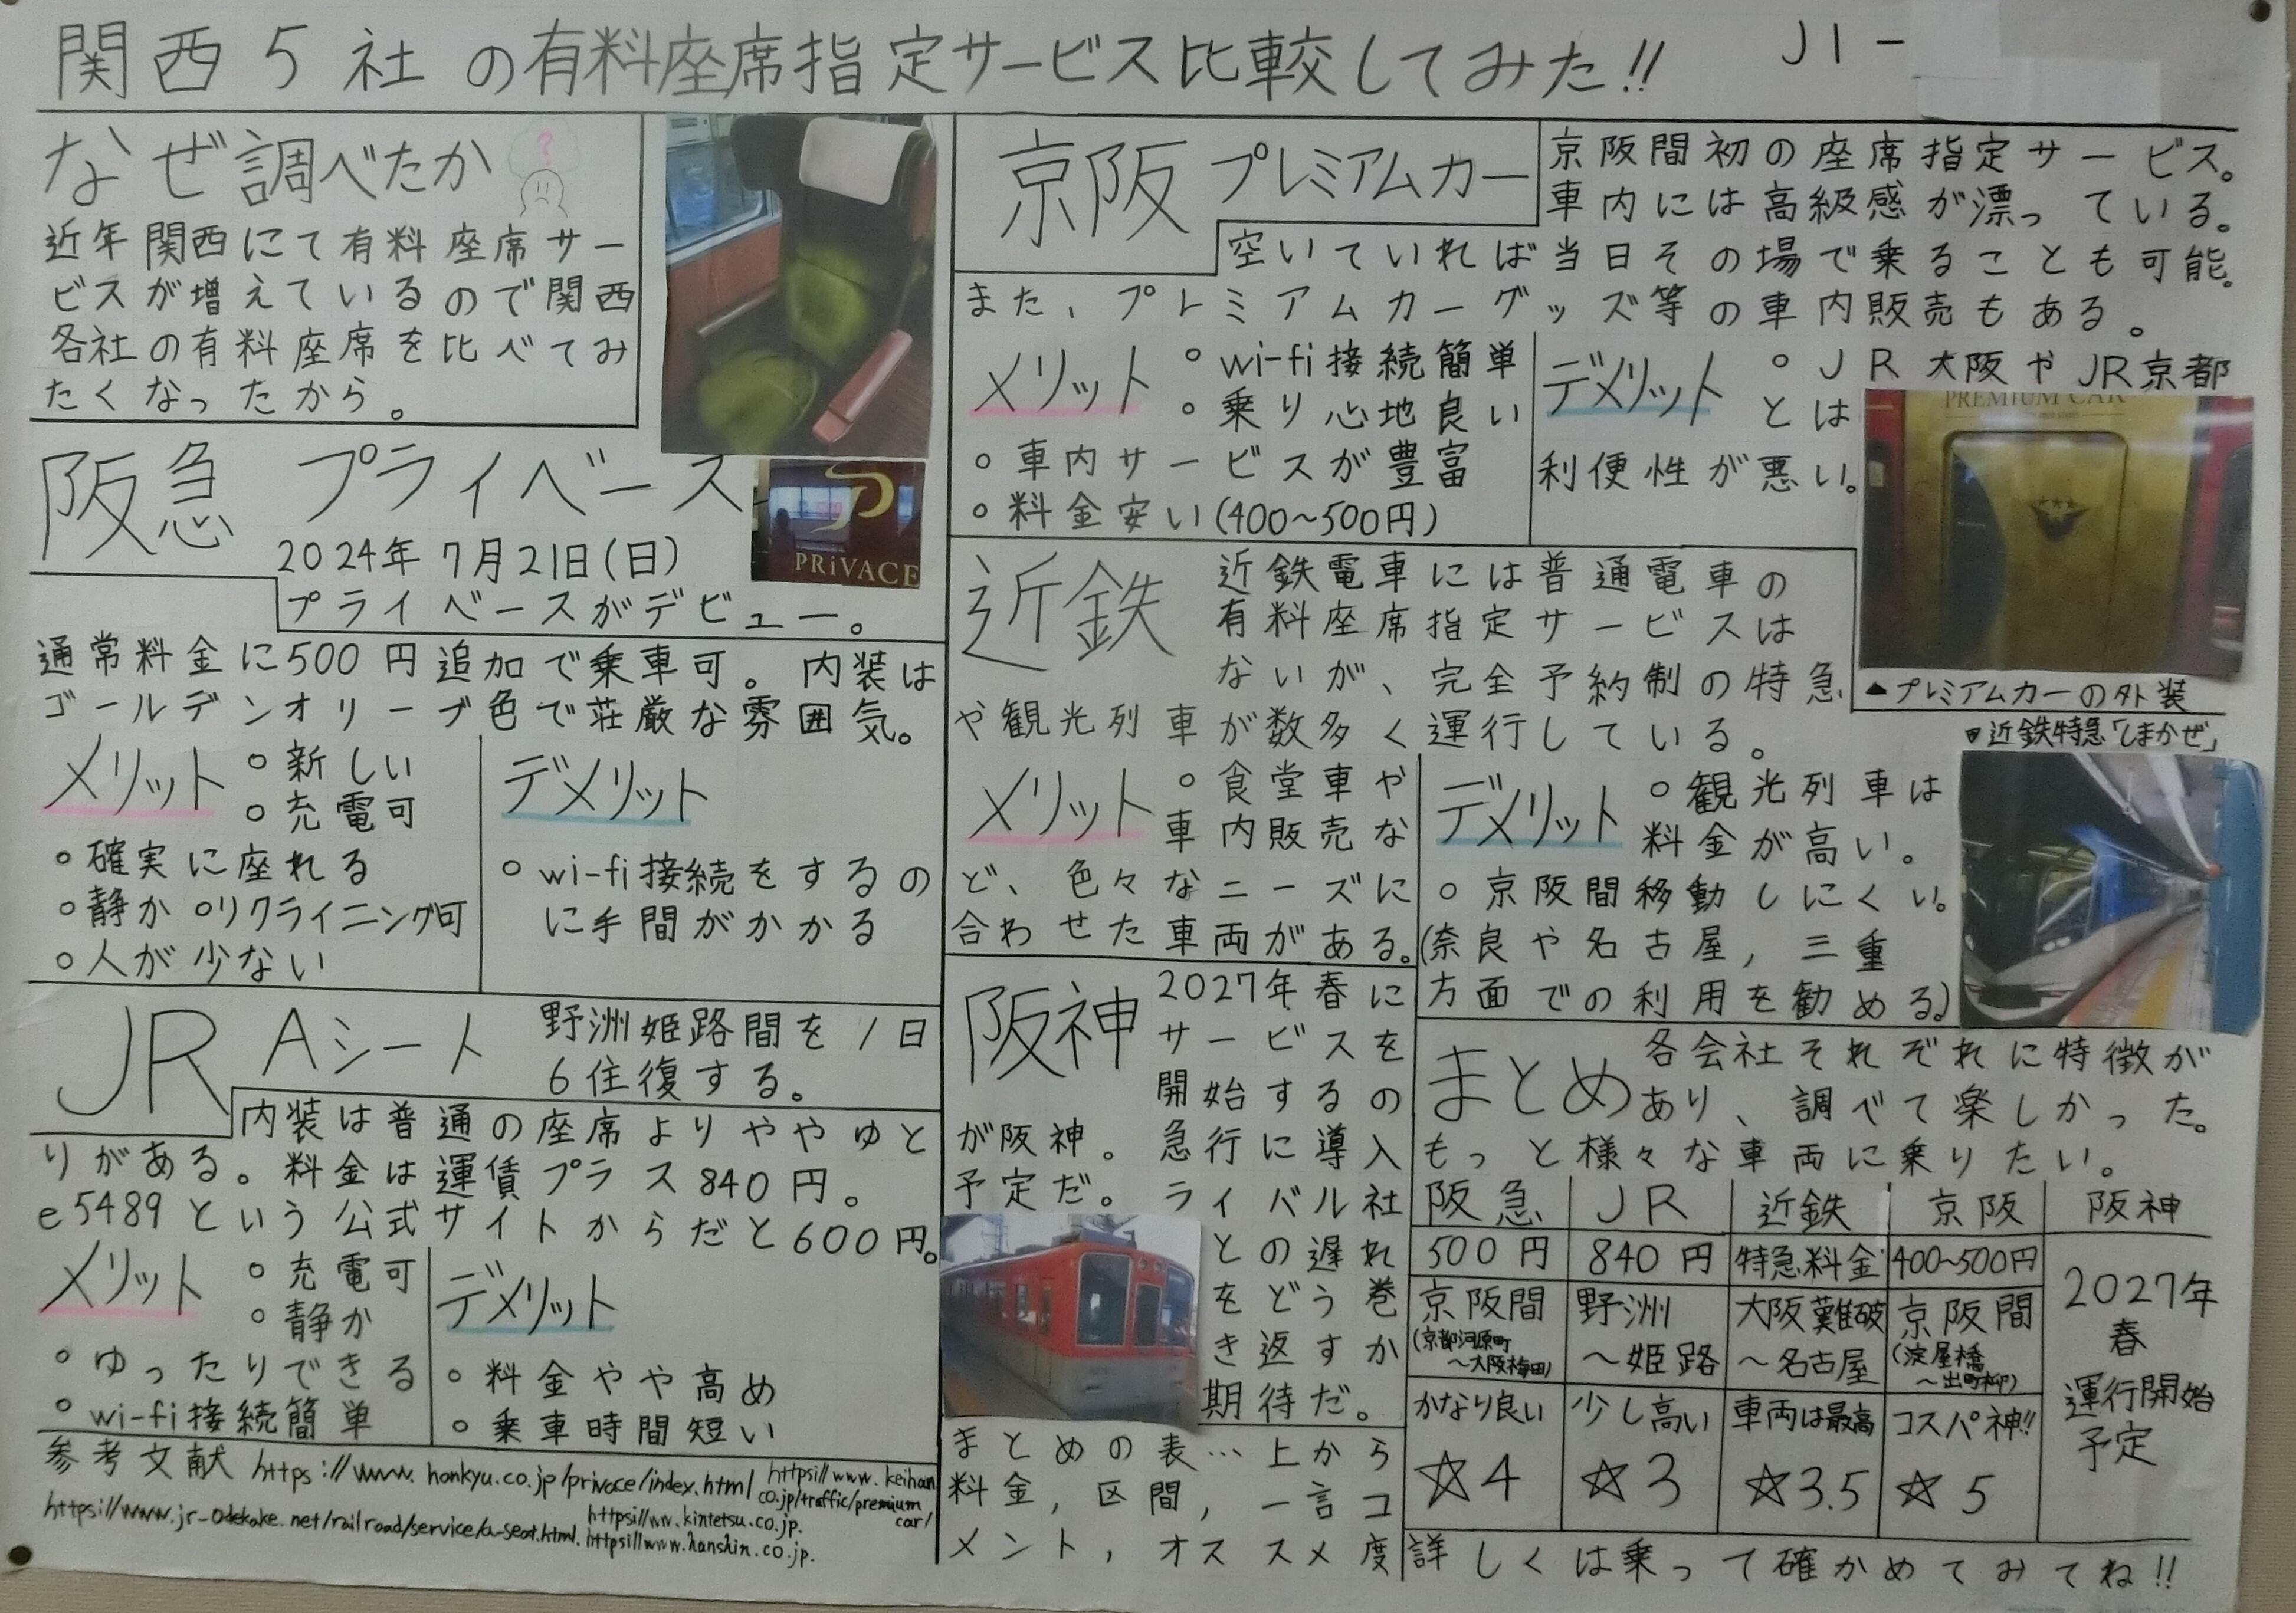 関西5社の有料座席指定サービス比較してみた!!
J1-
なぜ調べたか
?
近年関西にて有料座席サー
ビスが増えているので関西
各社の有料座席を比べてみ
たくなったから。
阪急 プライベース
PRiVACE
2024年7月21日(日)
プライベースがデビュー。
通常料金に500円追加で乗車可。内装は
ゴールデンオリーブ色で荘厳な雰囲気。
メリット
○新しい
○充電可
○確実に座れる
○静か ○リクライニング可
○人が少ない
デメリット
○wi-fi接続をするの
に手間がかかる
JR Aシート
野洲姫路間を1日
6往復する。
内装は普通の座席よりややゆと
りがある。料金は運賃プラス840円。
e5489という公式サイトからだと600円。
メリット
○充電可
○静か
○ゆったりできる
○wi-fi接続簡単
デメリット
○料金やや高め
○乗車時間短い
参考文献 https://www.hankyu.co.jp/privace/index.html
https://www.keihan.
co.jp/traffic/premium
car/
https://www.jr-odekake.net/railroad/service/a-seat.html.
https://ww.kintetsu.co.jp.
https://www.hanshin.co.jp.
京阪 プレミアムカー
京阪間初の座席指定サービス。
車内には高級感が漂っている。
空いていれば当日その場で乗ることも可能。
また、プレミアムカーグッズ等の車内販売もある。
メリット
○wi-fi接続簡単
○乗り心地良い
○車内サービスが豊富
○料金安い(400~500円)
デメリット
○JR大阪やJR京都
とは
利便性が悪い。
PREMIUM CAR
▲プレミアムカーの外装
近鉄
近鉄電車には普通電車の
有料座席指定サービスは
ないが、完全予約制の特急
や観光列車が数多く運行している。
▼近鉄特急「しまかぜ」
メリット
○食堂車や
車内販売な
ど、色々なニーズに
合わせた車両がある。
デメリット
○観光列車は
料金が高い。
○京阪間移動しにくい。
(奈良や名古屋,三重
方面での利用を勧める)
阪神
2027年春に
サービスを
開始するの
が阪神。急行に導入
予定だ。ライバル社
との遅れ
をどう巻
き返すか
期待だ。
まとめの表…上から
料金,区間,一言コ
メント,オススメ度
まとめ
各会社それぞれに特徴が
あり、調べて楽しかった。
もっと様々な車両に乗りたい。
阪急 JR 近鉄 京阪 阪神
500円 840円 特急料金 400~500円
京阪間 野洲 大阪難破 京阪間
(京都河原町 ~姫路 ~名古屋 (淀屋橋
~大阪梅田) ~出町柳)
かなり良い 少し高い 車両は最高 コスパ神!!
☆4 ☆3 ☆3.5 ☆5
2027年
春
運行開始
予定
詳しくは乗って確かめてみてね!!